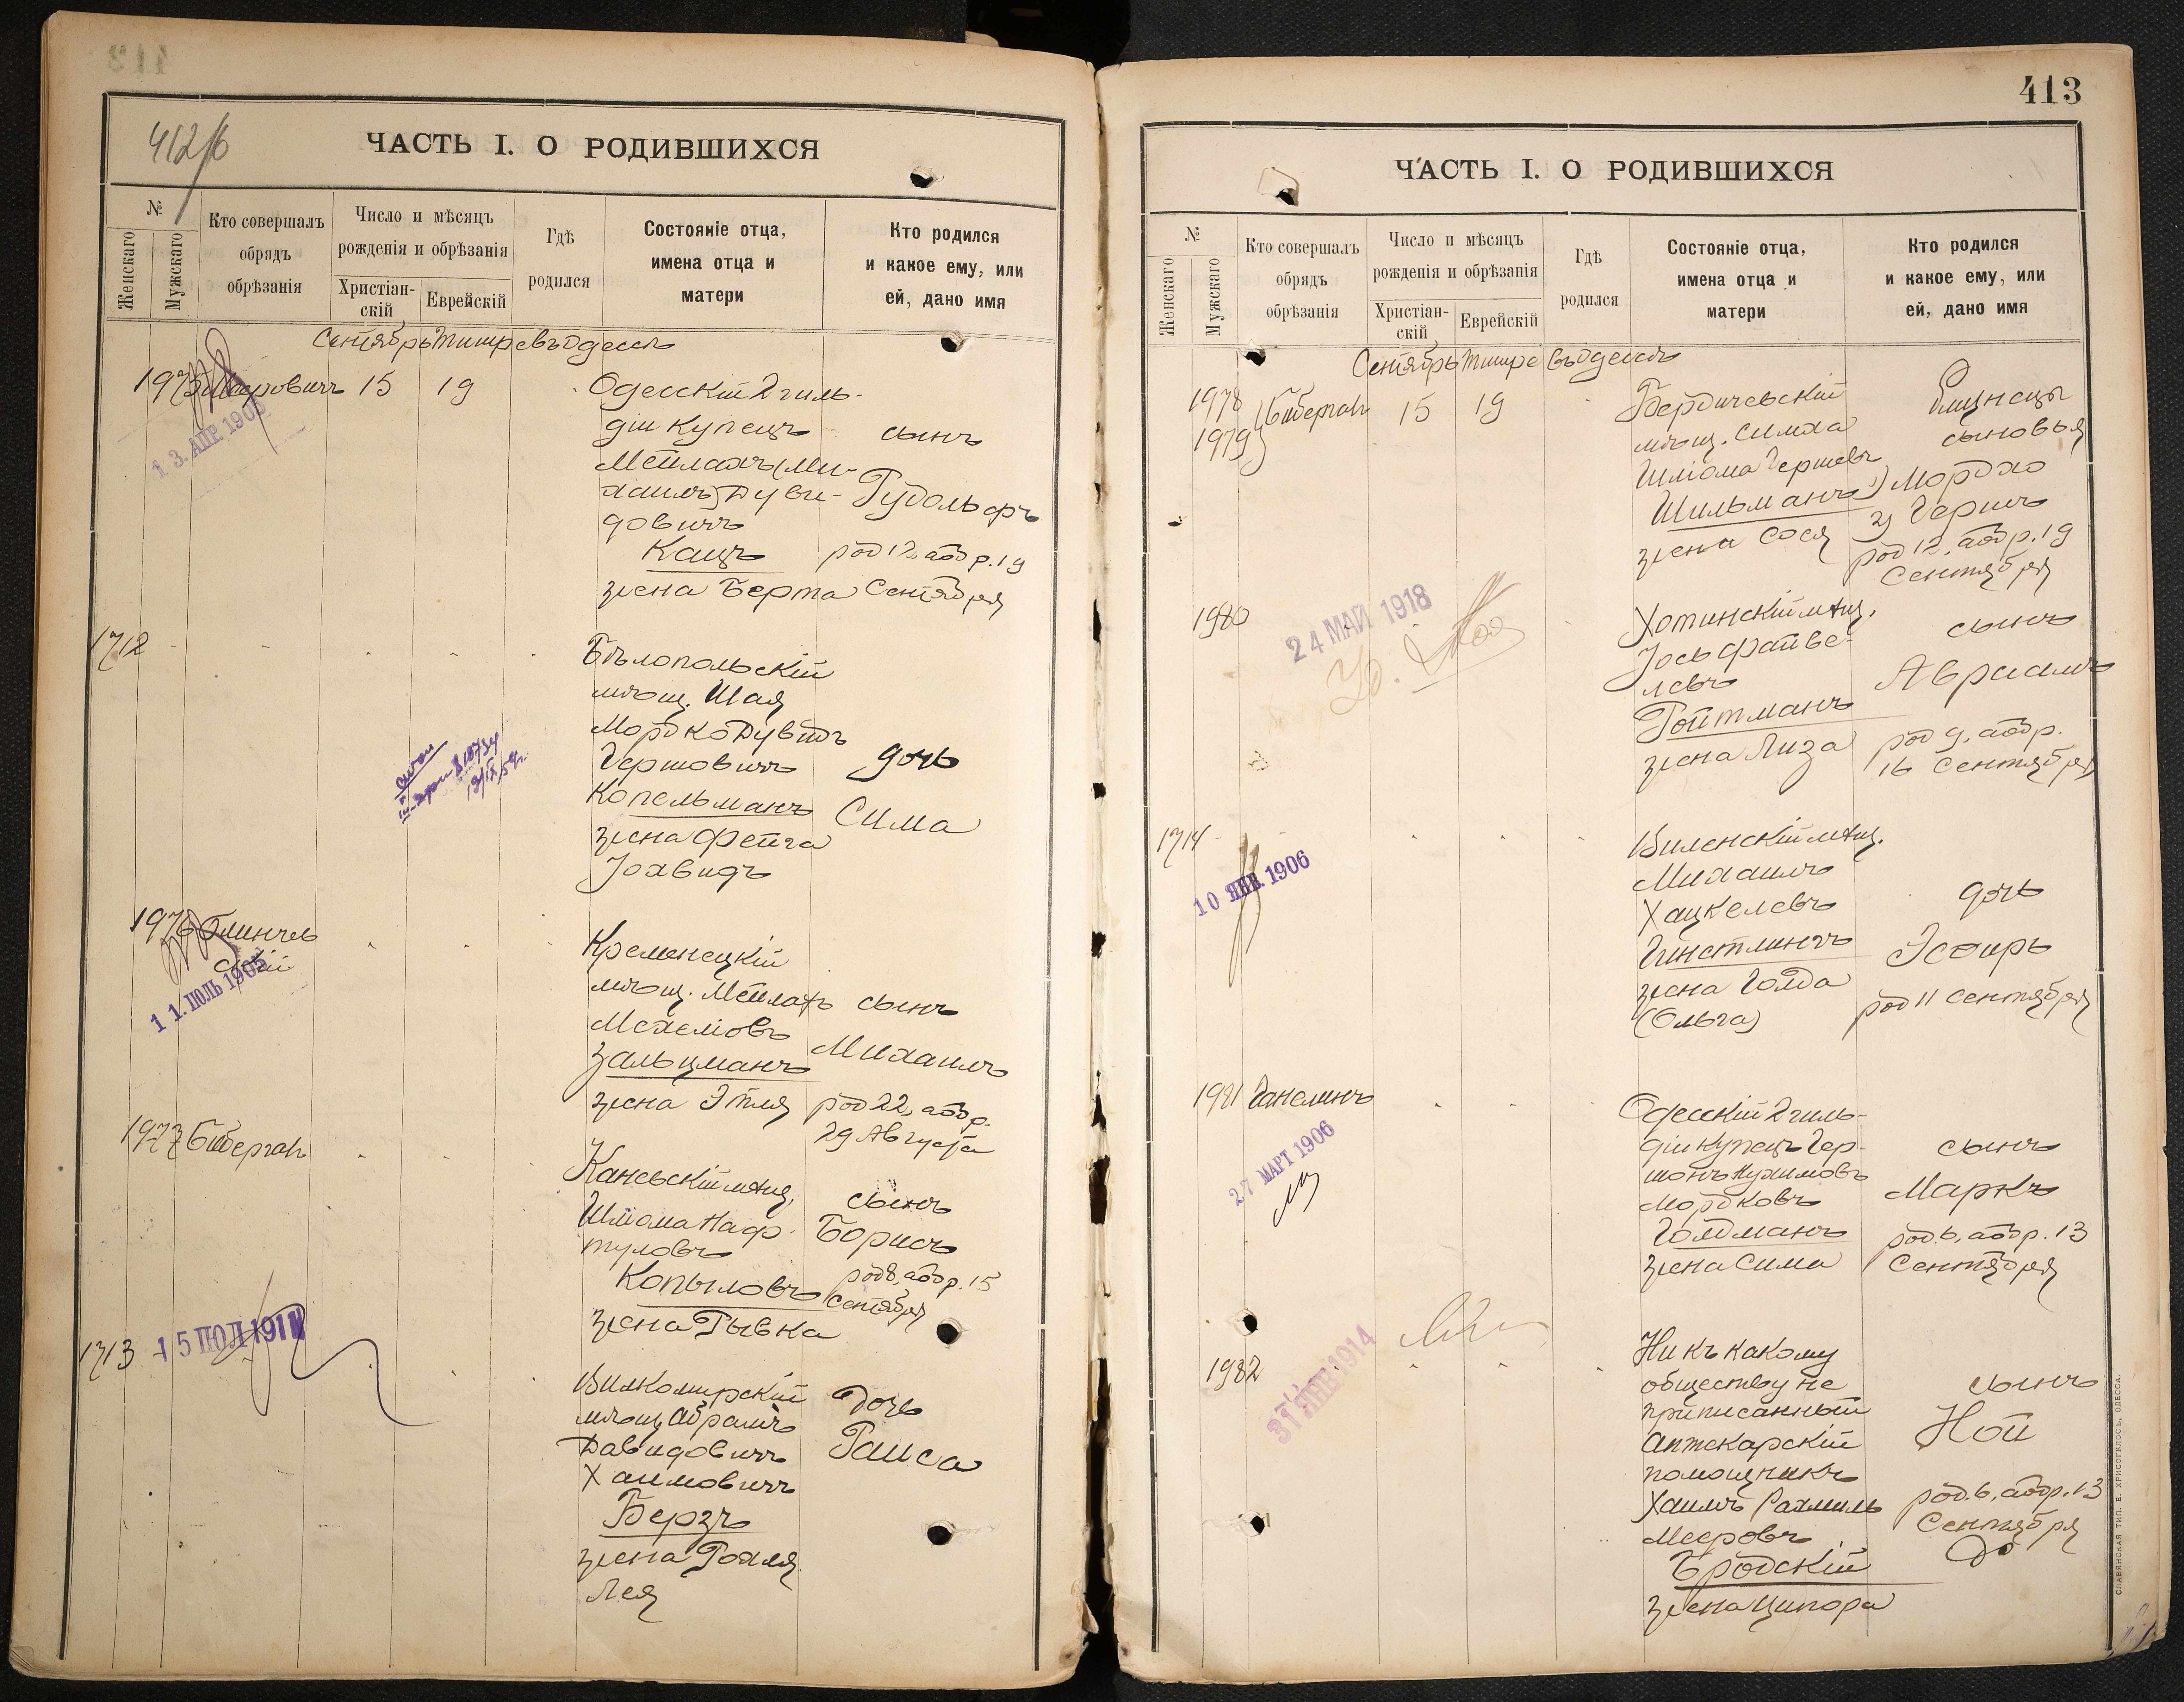 412/б
ЧАСТЬ I. О РОДИВШИХСЯ
№
Женскаго
Мужскаго
Кто совершалъ
обрядъ
обрѣзанія
Число и мѣсяцъ
рожденія и обрѣзанія
Христіан-
скій
Еврейскій
Гдѣ
родился
Состояніе отца,
имена отца и
матери
Кто родился
и какое ему, или
ей, дано имя
Сентябрь Тишре въ Одессѣ
15 19
13. АПР. 190
Одесскій 2 гиль-
діи купецъ
Мейлахъ (Ми-
хаилъ) Дуви-
довичъ
Кацъ
жена Берта
сынъ
Рудольфъ
род 12, абр. 19
Сентября
1712
Бѣлопольскій
мѣщ. Шая
Мордко Дувидъ
Гершовичъ
Копельманъ
жена Фейга
Іохвидъ
дочь
Сима
1976
11. ІЮЛЬ 1905
Кременецкій
мѣщ. Мейлахъ
Мехеліовъ
Зальцманъ
жена Этля
сынъ
Михаилъ
род 22, абр.
29 Августа
1977
Каневскій мѣщ.
Шліома Наф-
туловъ
Копыловъ
жена Рывка
сынъ
Борисъ
род 8, абр. 15
Сентября
1713
15 ІЮЛ 191
Вилкомирскій
мѣщ. Абрамъ
Давидовичъ
Хаимовичъ
Берзъ
жена Рохля
Лея
дочь
Раиса
413
ЧАСТЬ I. О РОДИВШИХСЯ
№
Женскаго
Мужскаго
Кто совершалъ
обрядъ
обрѣзанія
Число и мѣсяцъ
рожденія и обрѣзанія
Христіан-
скій
Еврейскій
Гдѣ
родился
Состояніе отца,
имена отца и
матери
Кто родился
и какое ему, или
ей, дано имя
Сентябрь Тишре въ Одессѣ
1978
1979
15 19
Бердичевскій
мѣщ. Симха
Шліома Гершовъ
Шильманъ
жена Сося
Близнецы
сыновья
1) Мордко
2) Гершъ
род 12, абр. 19
Сентября
1980
24 МАЙ 1918
Хотинскій мѣщ.
Іось Файве-
левъ
Ройтманъ
жена Лиза
сынъ
Авраамъ
род 9, абр.
16 Сентября
1714
10 ЯНВ. 1906
Виленскій мѣщ.
Михаилъ
Хацкелевъ
жена Голда
(Ольга)
дочь
Эсѳирь
род 11 Сентября
1981
27 МАРТ 1906
Одесскій 2 гиль-
діи купецъ Гер-
шонъ Нухимовъ
Мордковъ
Голдманъ
жена Сима
сынъ
Маркъ
род. 6, абр. 13
Сентября
1982
31 ЯНВ 1914
Ни къ какому
обществу не
приписанный
Аптекарскій
помощникъ
Хаимъ Рахмиль
Мееровъ
Бродскій
жена Ципора
сынъ
Ной
род. 6, абр. 13
Сентября
СЛАВЯНСКАЯ ТИП. Е. ХРИСОГЕЛОСЪ, ОДЕССА.